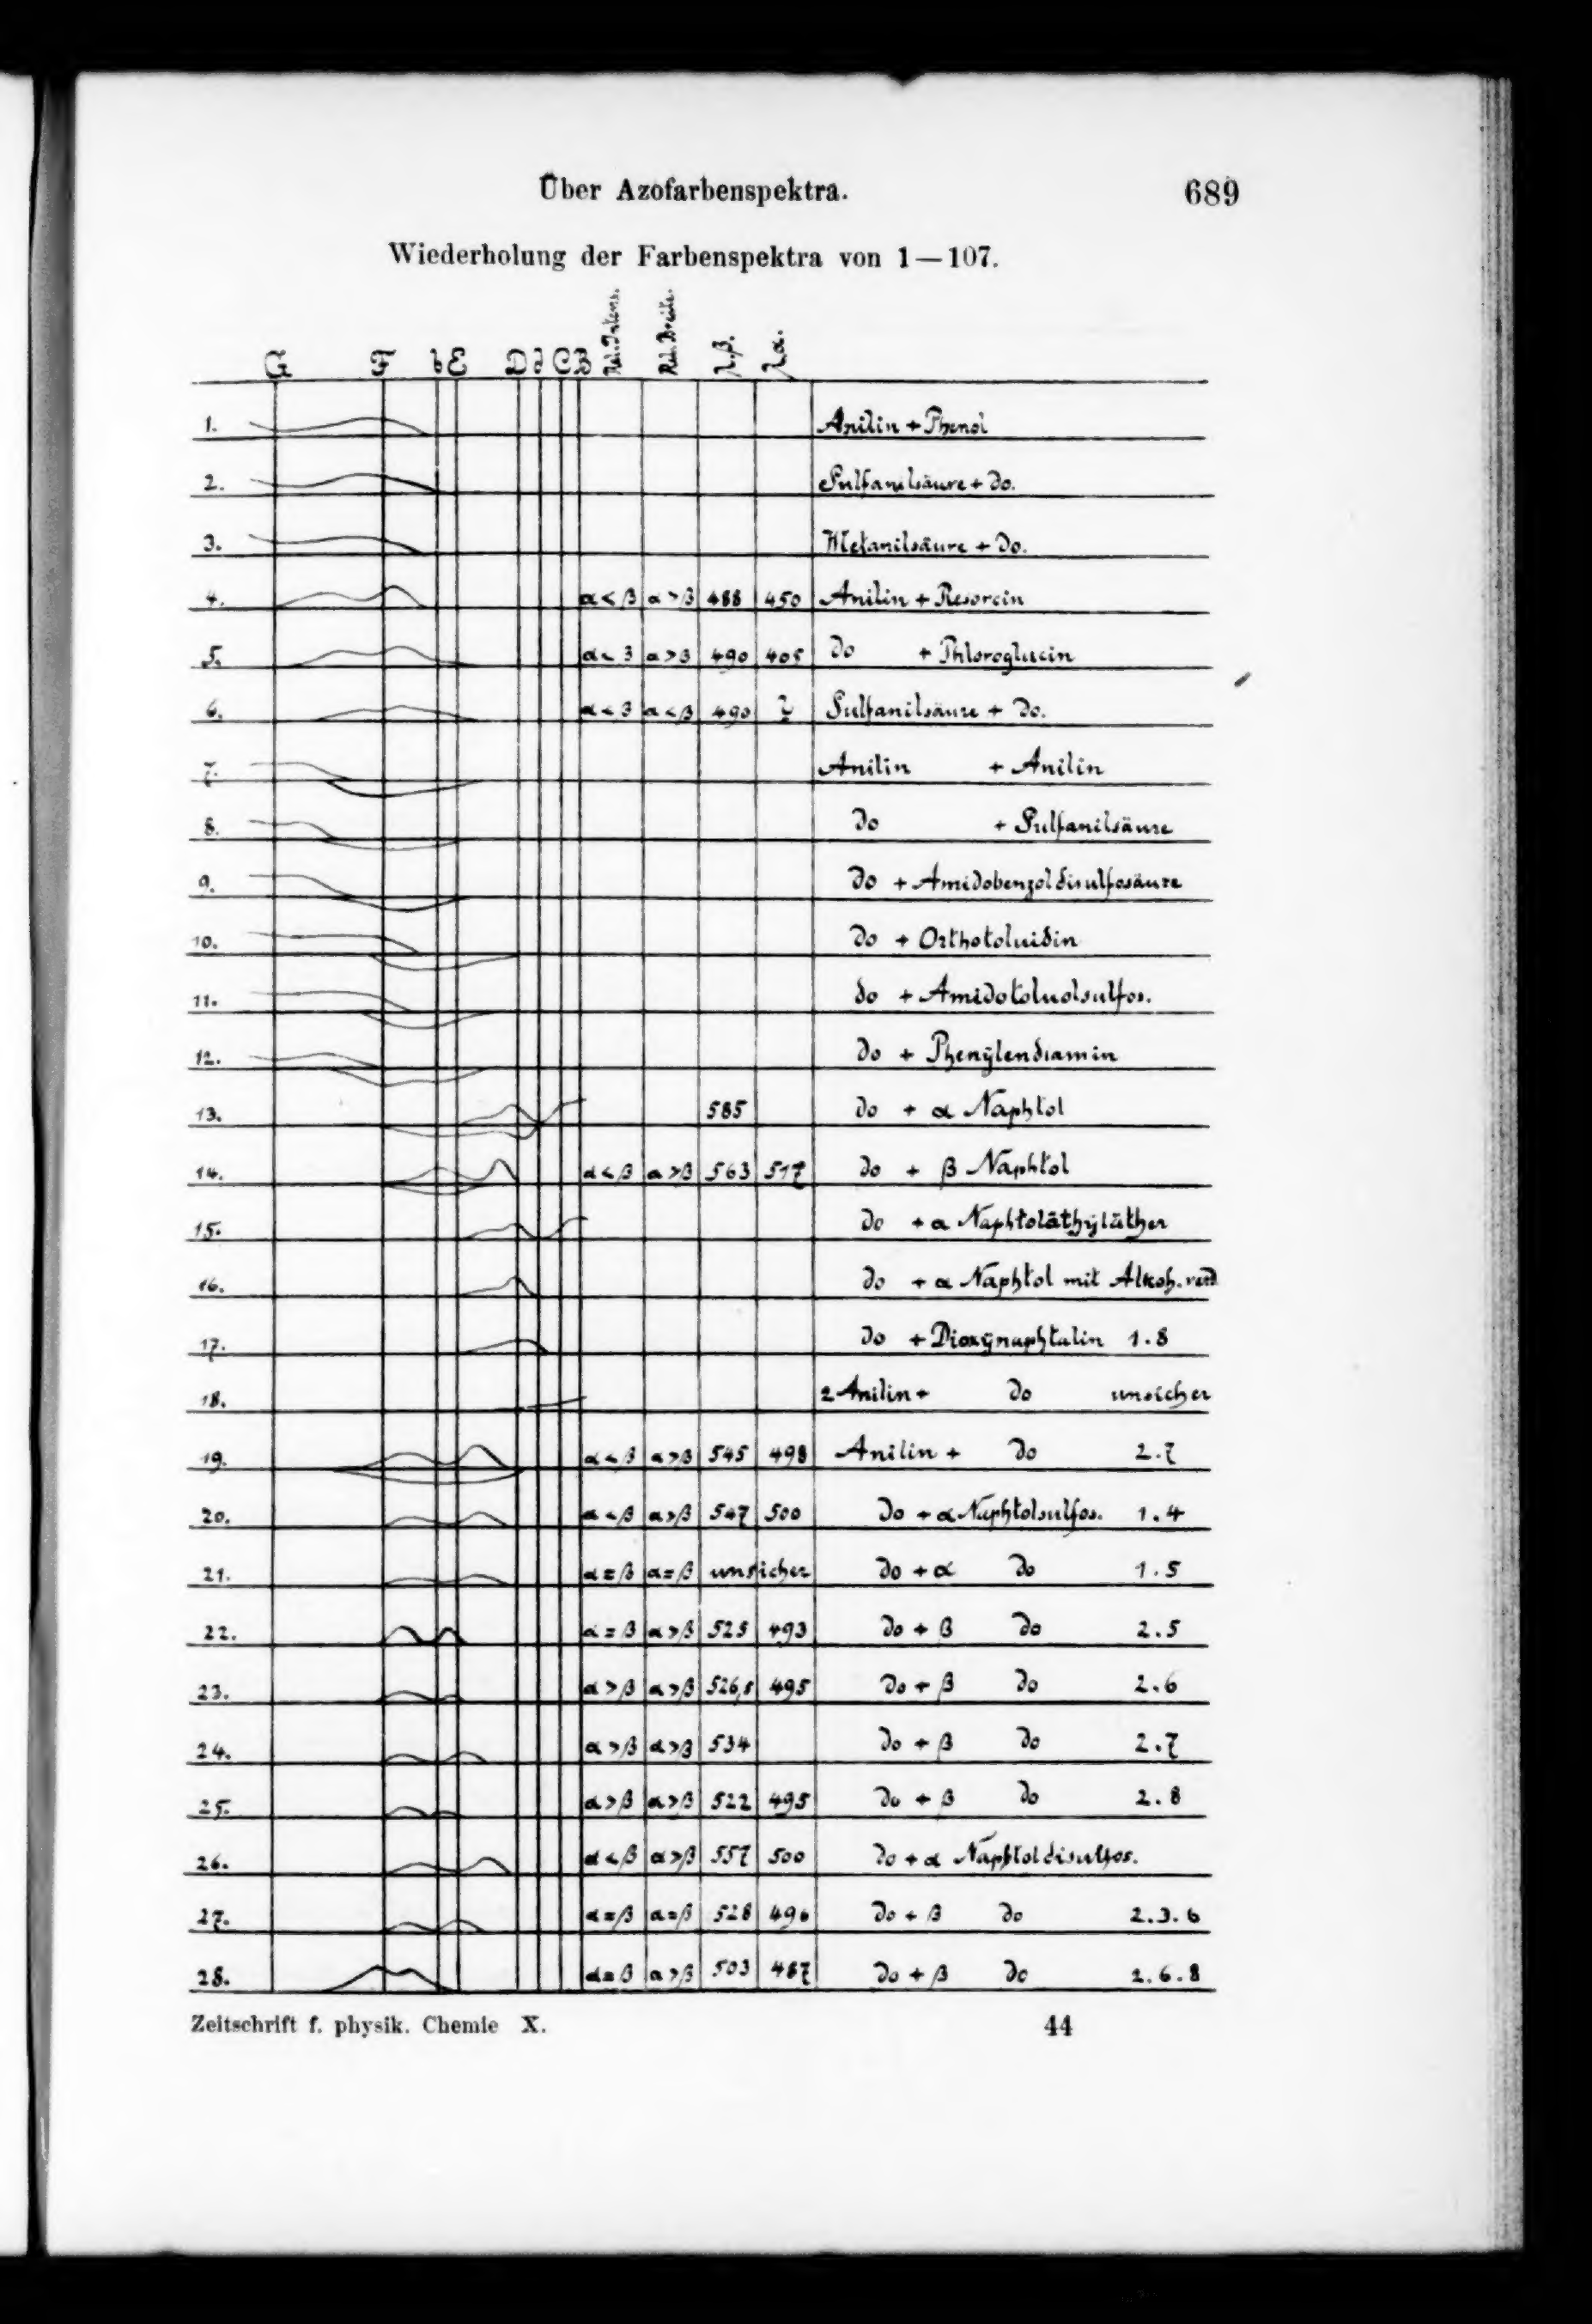 Über Azofarbenspektra. 689
Wiederholung der Farbenspektra von 1—107.
G F b E D d C B Rel. Intens. Rel. Breite. λβ. λα.
1. Anilin + Phenol
2. Sulfanilsäure + do.
3. Metanilsäure + do.
4. α < β α > β 488 450 Anilin + Resorcin
5. α < β α > β 490 405 do + Phloroglucin
6. α < β α < β 490 ? Sulfanilsäure + do.
7. Anilin + Anilin
8. do + Sulfanilsäure
9. do + Amidobenzoldisulfosäure
10. do + Orthotoluidin
11. do + Amidotoluolsulfos.
12. do + Phenylendiamin
13. 585 do + α Naphtol
14. α < β α > β 563 517 do + β Naphtol
15. do + α Naphtoläthyläther
16. do + α Naphtol mit Alkoh. verd
17. do + Dioxynaphtalin 1.8
18. 2 Anilin + do unsicher
19. α < β α > β 545 498 Anilin + do 2.7
20. α < β α > β 547 500 do + α Naphtolsulfos. 1.4
21. α = β α = β unsicher do + α do 1.5
22. α = β α > β 525 493 do + β do 2.5
23. α > β α > β 526,5 495 do + β do 2.6
24. α > β α > β 534 do + β do 2.7
25. α > β α > β 522 495 do + β do 2.8
26. α < β α > β 557 500 do + α Naphtoldisulfos.
27. α = β α = β 528 496 do + β do 2.3.6
28. α = β α > β 503 487 do + β do 2.6.8
Zeitschrift f. physik. Chemie X. 44